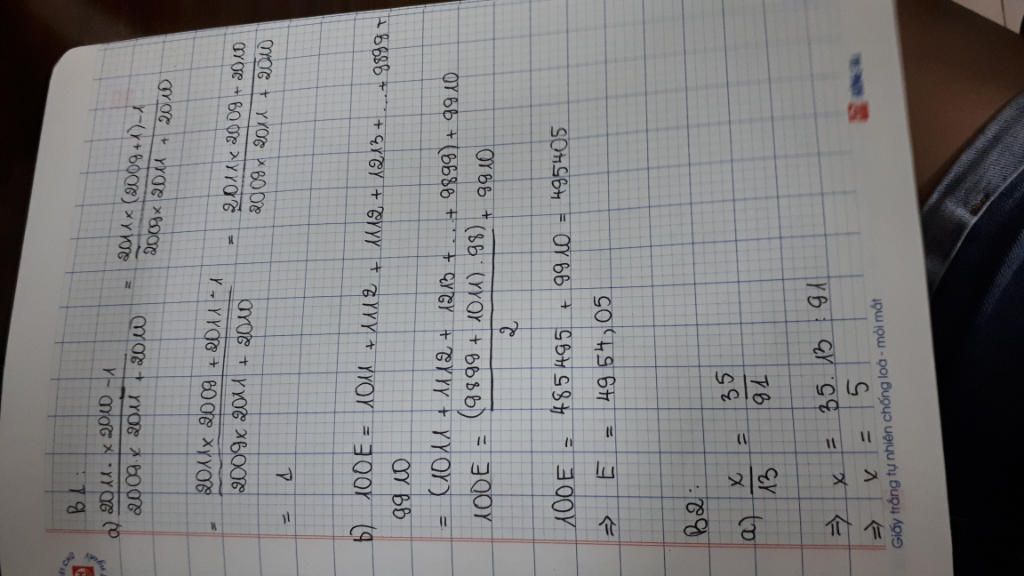 B1:
a) 2011. × 2010 - 1 / 2009 × 2011 + 2010 = 2011 × (2009 + 1) - 1 / 2009 × 2011 + 2010
= 2011 × 2009 + 2011 - 1 / 2009 × 2011 + 2010 = 2011 × 2009 + 2010 / 2009 × 2011 + 2010
= 1
b) 100E = 1011 + 1112 + 1112 + 1213 + ... + 9899 +
9910
= (1011 + 1112 + 1213 + ... + 9899) + 9910
100E = (9899 + 1011) . 98) / 2 + 9910
100E = 485495 + 9910 = 495405
=> E = 4954,05
B2:
a) x / 13 = 35 / 91
=> x = 35. 13 : 91
=> x = 5
Giấy trắng tự nhiên chống loá - mỏi mắt